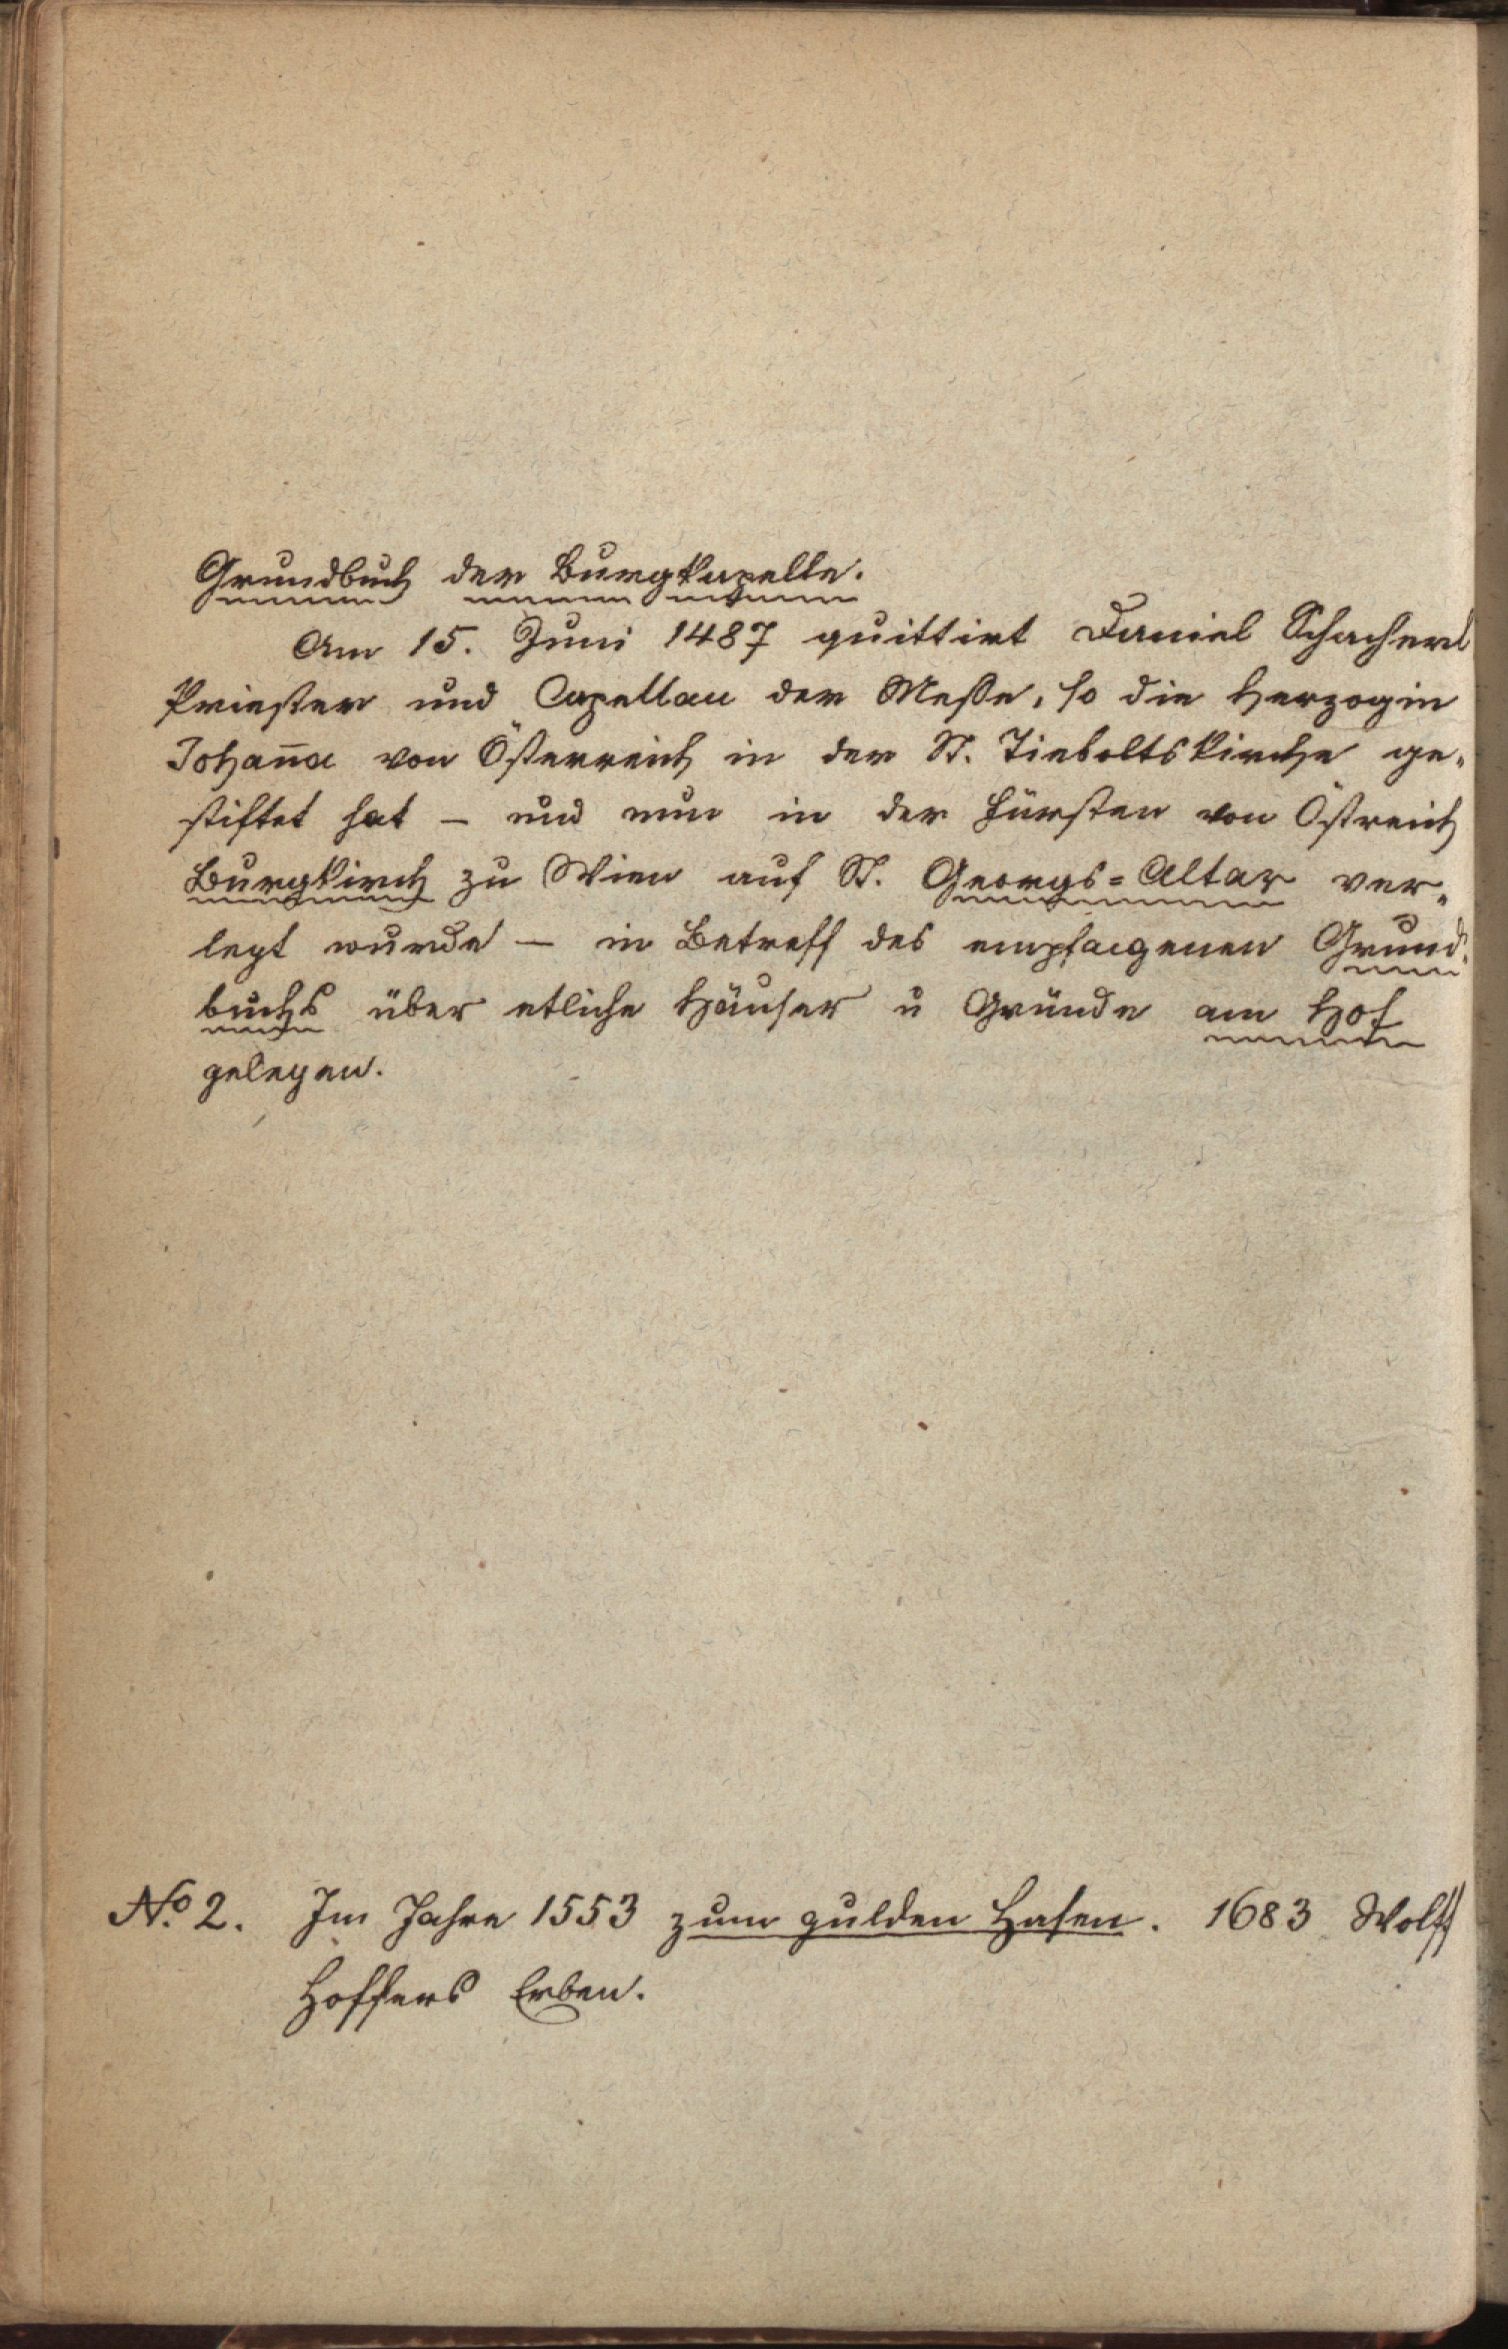 Grundbuch der Burgkapelle.
Am 15. Juni 1487 quittirt Daniel Schacherl
Priester und Capellan der Meße, so die Herzogin
Johan̅a von Österreich in der St. Tieboltskirche ge„
stiftet hat – und nun in der Fürsten von Östreich
Burgkirch zu Wien auf St. Georgs=Altar ver„
legt wurde – in Betreff des empfangenen Grund„
buchs über etliche Häuser u Gründe am Hof
gelegen.
No. 2. Im Jahre 1553 zum gulden Hasen. 1683 Wolff
Hoffers Erben.